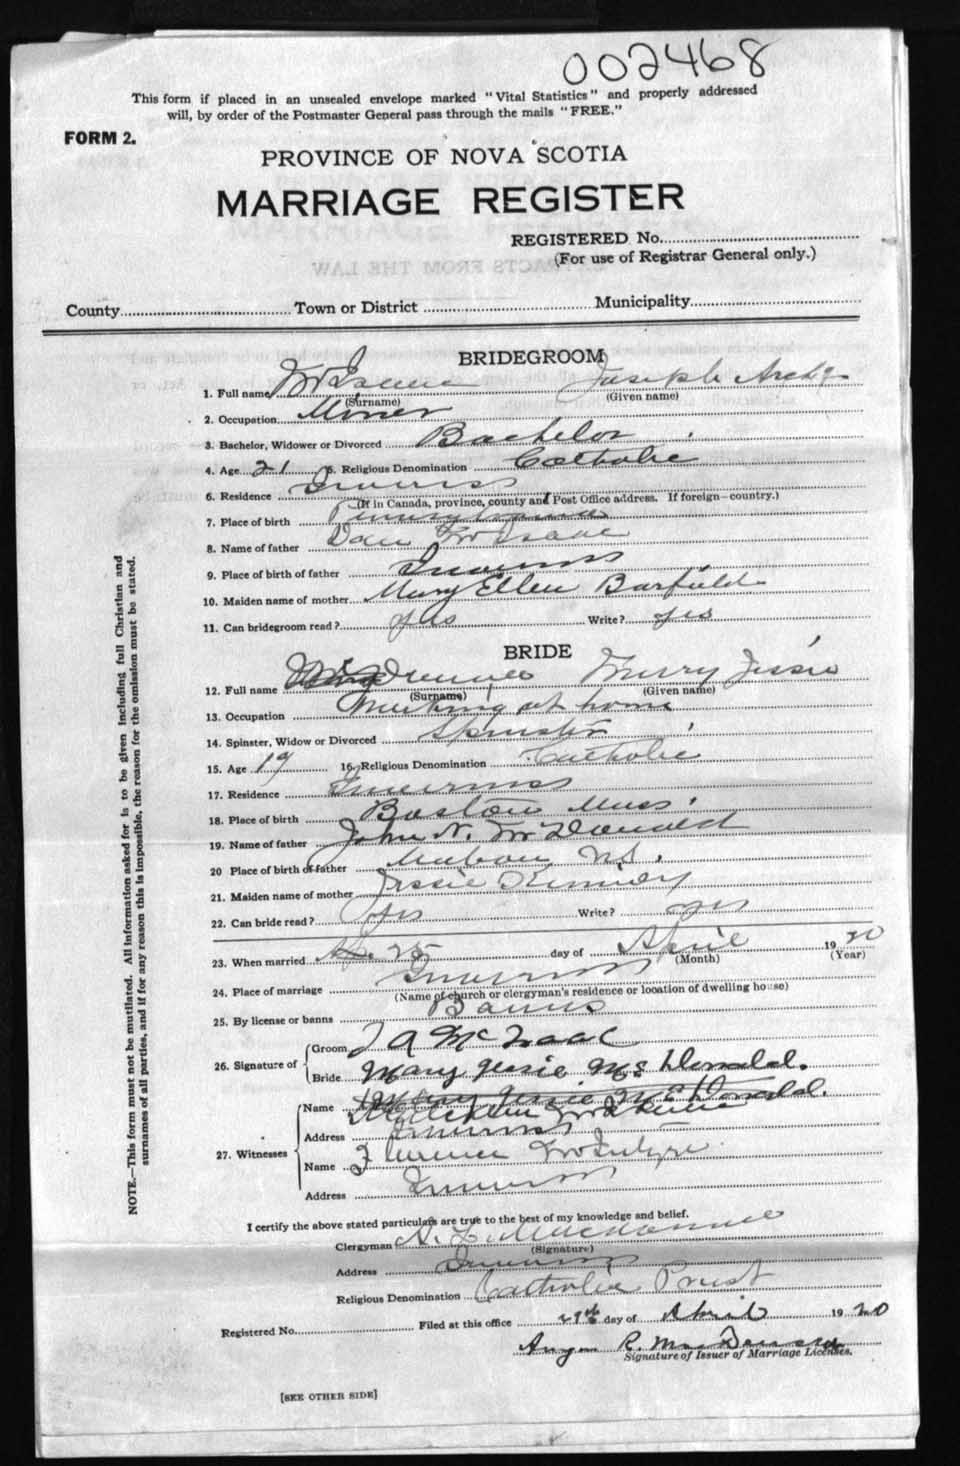 002468
This form if placed in an unsealed envelope marked "Vital Statistics" and properly addressed
will, by order of the Postmaster General pass through the mails "FREE."
FORM 2.
PROVINCE OF NOVA SCOTIA
MARRIAGE REGISTER
REGISTERED No.
(For use of Registrar General only.)
County Town or District Municipality
BRIDEGROOM
1. Full name McIsaac Joseph
(Surname) (Given name)
2. Occupation Miner
3. Bachelor, Widower or Divorced Bachelor
4. Age 21 5. Religious Denomination Catholic
6. Residence Inverness
(If in Canada, province, county and Post Office address. If foreign—country.)
7. Place of birth Pennsylvania
8. Name of father Dan McIsaac
9. Place of birth of father Inverness
10. Maiden name of mother Mary Ellen Barfield
11. Can bridegroom read? yes Write? yes
BRIDE
12. Full name Jessie
(Surname) (Given name)
13. Occupation Working at home
14. Spinster, Widow or Divorced Spinster
15. Age 19 16. Religious Denomination Catholic
17. Residence Inverness
18. Place of birth Boston Mass.
19. Name of father John N. McDonald
20 Place of birth of father Mabou N.S.
21. Maiden name of mother Jessie Kennedy
22. Can bride read? yes Write? yes
23. When married 25 day of April 1920
(Month) (Year)
24. Place of marriage Inverness
(Name of church or clergyman's residence or location of dwelling house)
25. By license or banns Banns
26. Signature of Groom J A McIsaac
Bride Mary Jessie McDonald.
27. Witnesses Name Mary Jessie McDonald.
Address Inverness
Name Florence McIntyre
Address Inverness
I certify the above stated particulars are true to the best of my knowledge and belief.
Clergyman A. L. MacKinnon
(Signature)
Address Inverness
Religious Denomination Catholic Priest
Registered No. Filed at this office 29th day of April 1920
Angus R. MacDonald
Signature of Issuer of Marriage Licenses.
[SEE OTHER SIDE]
NOTE.—This form must not be mutilated. All information asked for is to be given including full Christian and
surnames of all parties, and if for any reason this is impossible, the reason for the omission must be stated.